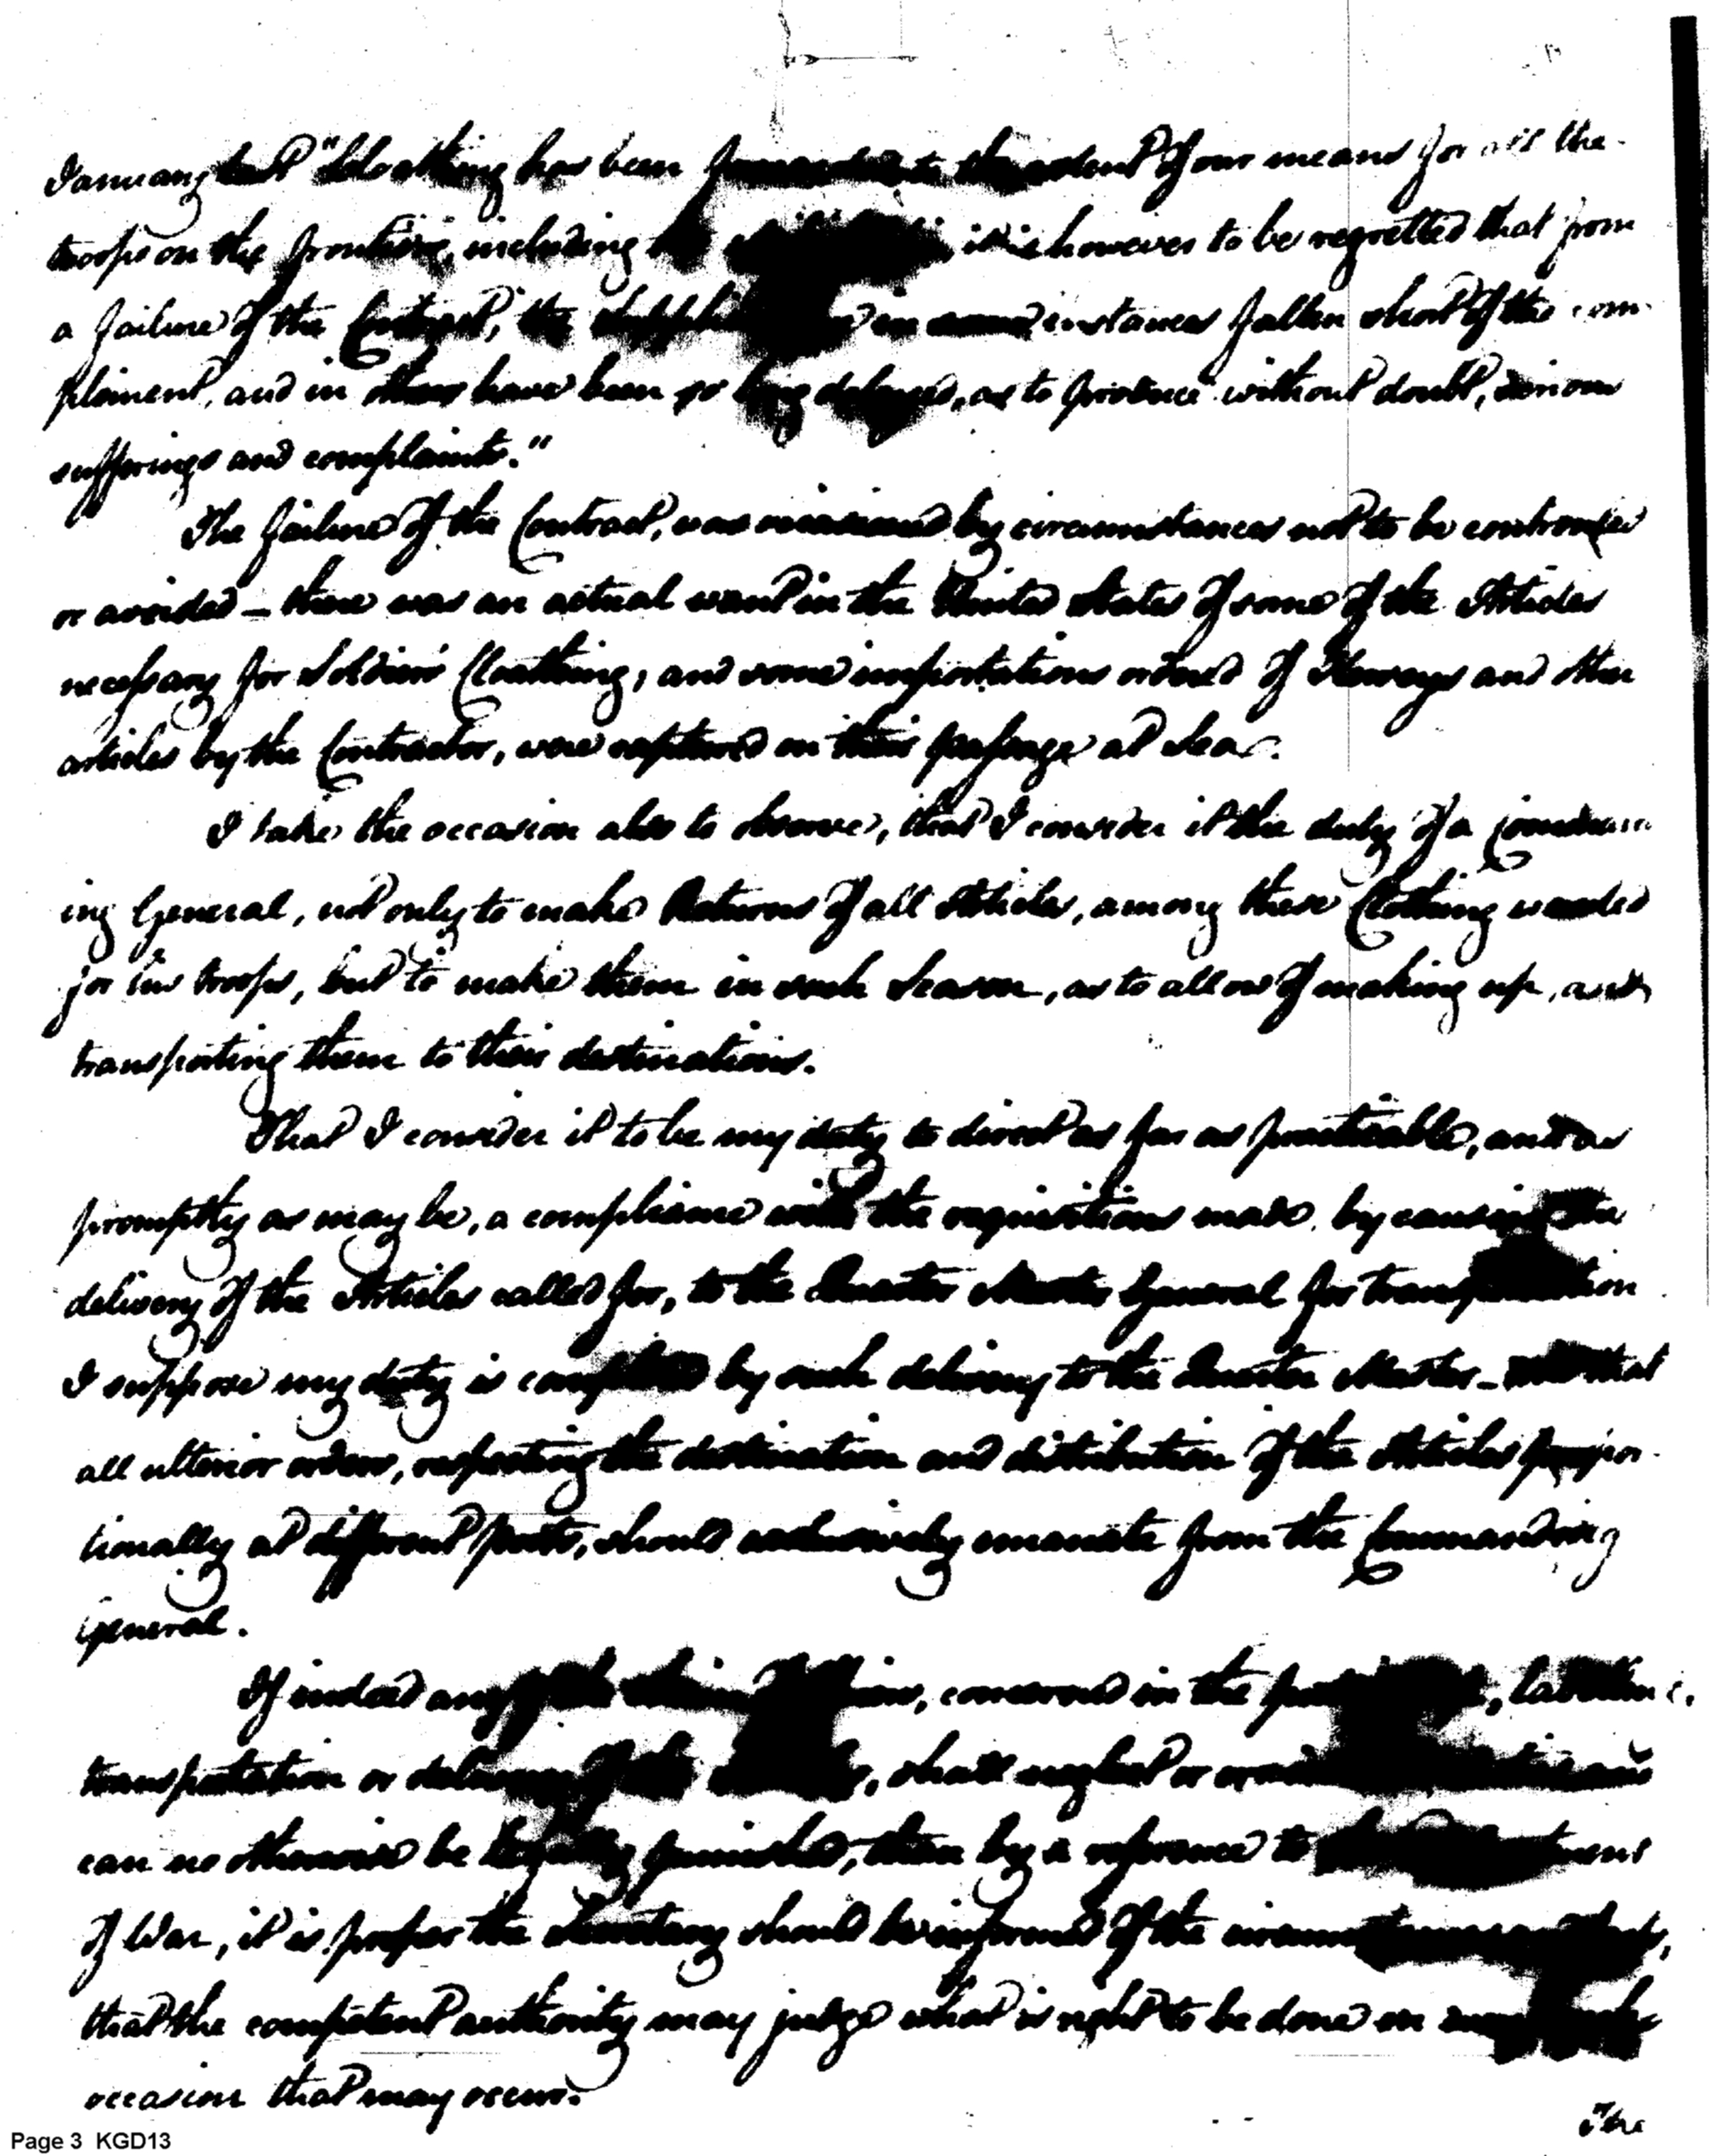 January last "Cloathing has been forwarded to the extent of our means for all the
troops on the frontiers, including the it is however to be regretted that from
a failure of the Contract, the supplies in some instances fallen short of the com
pliment, and in others have been so long delayed, as to produce without doubt, serious
sufferings and complaints."
The failure of the Contract, was occasioned by circumstances not to be controuled
or avoided – there was an actual want in the United States of some of the Articles
necessary for Soldiers Cloathing, and some importations ordered of Kerseys and other
articles by the Contractor, were captured on their passage at Sea.
I take the occasion also to observe, that I consider it the duty of a Command
ing General, not only to make Returns of all Articles, among these Clothing wanted
for his troops, but to make them in such Season, as to allow of making up, and
transporting them to their destinations.
That I consider it to be my duty to direct as far as practicable, and as
promptly as may be, a compliance with the requisitions made, by causing the
delivery of the Articles called for, to the Quarter Master General for transportation
I suppose my duty is completed by such delivery to the Quarter Master – and that
all ulterior orders, respecting the destination and distribution of the Articles propor-
tionally at different posts, should exclusively emanate from the Commanding
General.
If indeed any of the concerned in the
transportation or delivery of the shall neglect or
can no otherwise be legally punished, than by a reference to
of War, it is proper the Secretary should be informed of the circumstances
that the competent authority may judge what is right to be done on
occasion that may occur.
The
Page 3 KGD13